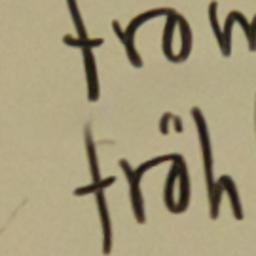 from
fröh